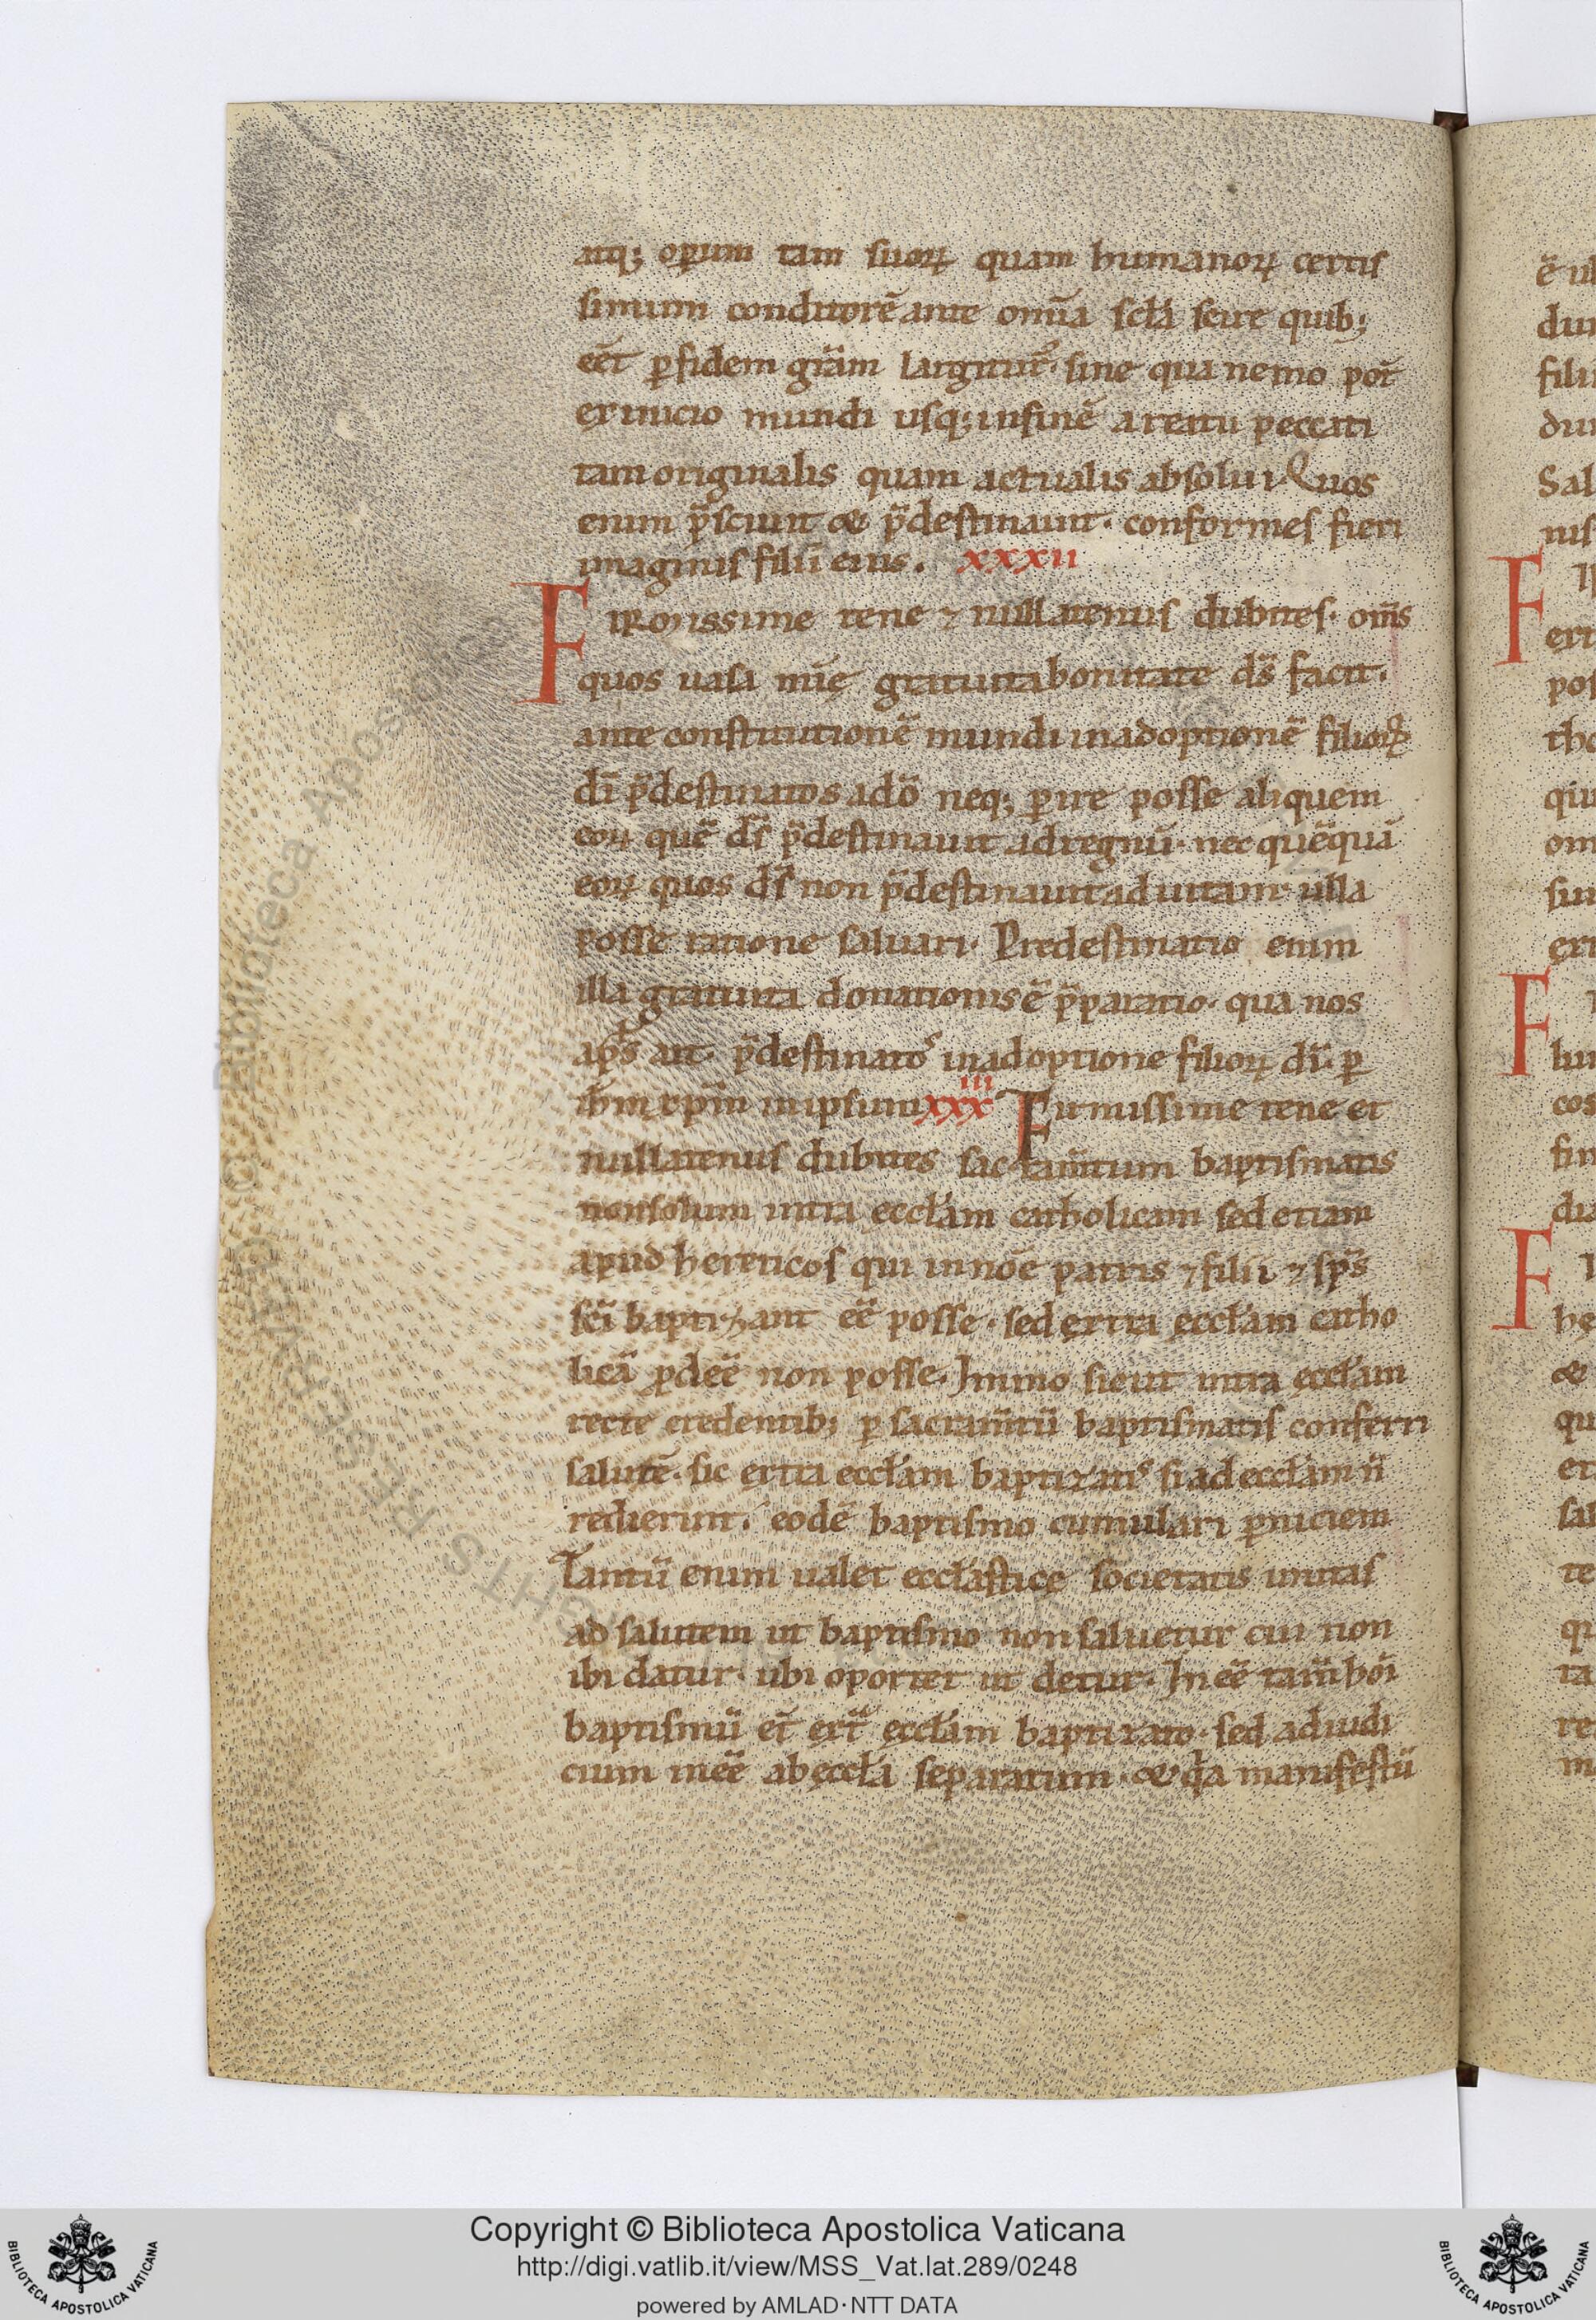 atq; oꝑum tam suoꝝ quam humanoꝝ certis
simum conditorē ante omīa scła scire quib;
eēt ꝑ fidem grām largiturꝰ. sine qua nemo pot̄
ex inicio mundi usq; in finē a reatu peccati
tam originalis quam actualis absolui. Quos
enim p̄sciuit & p̄destinauit. conformes fieri
imaginis filii eius. xxxii
FIRmissime tene ⁊ nullatenus dubites. om̄s
quos uasa mīę gratuita bonitate d̄s facit.
ante constitutionē mundi in adoptionē filioꝝ
dī p̄destinatos a dō neq; ꝑire posse aliquem
eoꝝ quē d̄s p̄destinauit ad regnū. nec quēquā
eoꝝ quos d̄s non p̄destinauit ad uitam ulla
posse ratione saluari. Predestinatio enim
illa gratuita donationis ē p̄paratio. qua nos
apłs ait p̄destinatoˢ in adoptione filioꝝ dī. ꝑ
ihm xpm in ipsum xxxiii Firmissime tene et
nullatenus dubites sacram̄tum baptismatis
non solum intra eccłam catholicam sed etiam
apud hereticos qui in noē patris ⁊ filii ⁊ sp̄s
sc̄i baptizant eē posse. sed extra eccłam catho
licā ꝓdeē non posse. Immo sicut intra eccłam
recte credentib; ꝑ sacram̄tū baptismatis conferri
salutē. sic extra eccłam baptizatiˢ si ad eccłam n̄
redierint. eodē baptismo cumulari ꝑniciem
Tantū enim ualet eccłastice societatis unitas
ad salutem ut baptismo non saluetur cui non
ibi datur. ubi oportet ut detur. Ineē tam̄ hoī
baptismū et̄ ext̄ᵃ eccłam baptizato. sed ad iudi
cium ineē ab eccła separatum. & q̇a manifestū
Copyright © Biblioteca Apostolica Vaticana
http://digi.vatlib.it/view/MSS_Vat.lat.289/0248
powered by AMLAD·NTT DATA
BIBLIOTECA APOSTOLICA VATICANA
BIBLIOTECA APOSTOLICA VATICANA